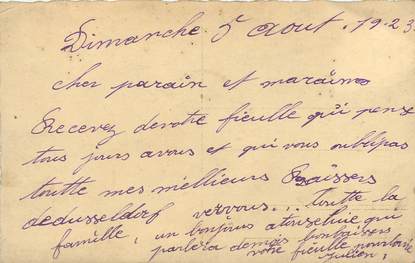 Dimanche 5 aout 1923
cher parain et maraine
Recevez de votre fieulle qui pense
tous jours avous et qui vous oublipas
toutte mes mellieurs Baissers
dedusseldorf vervous... toutte la
famille, un bonjous atousceluie qui
parlera demois bonbaissers
votre fieulle
julien,